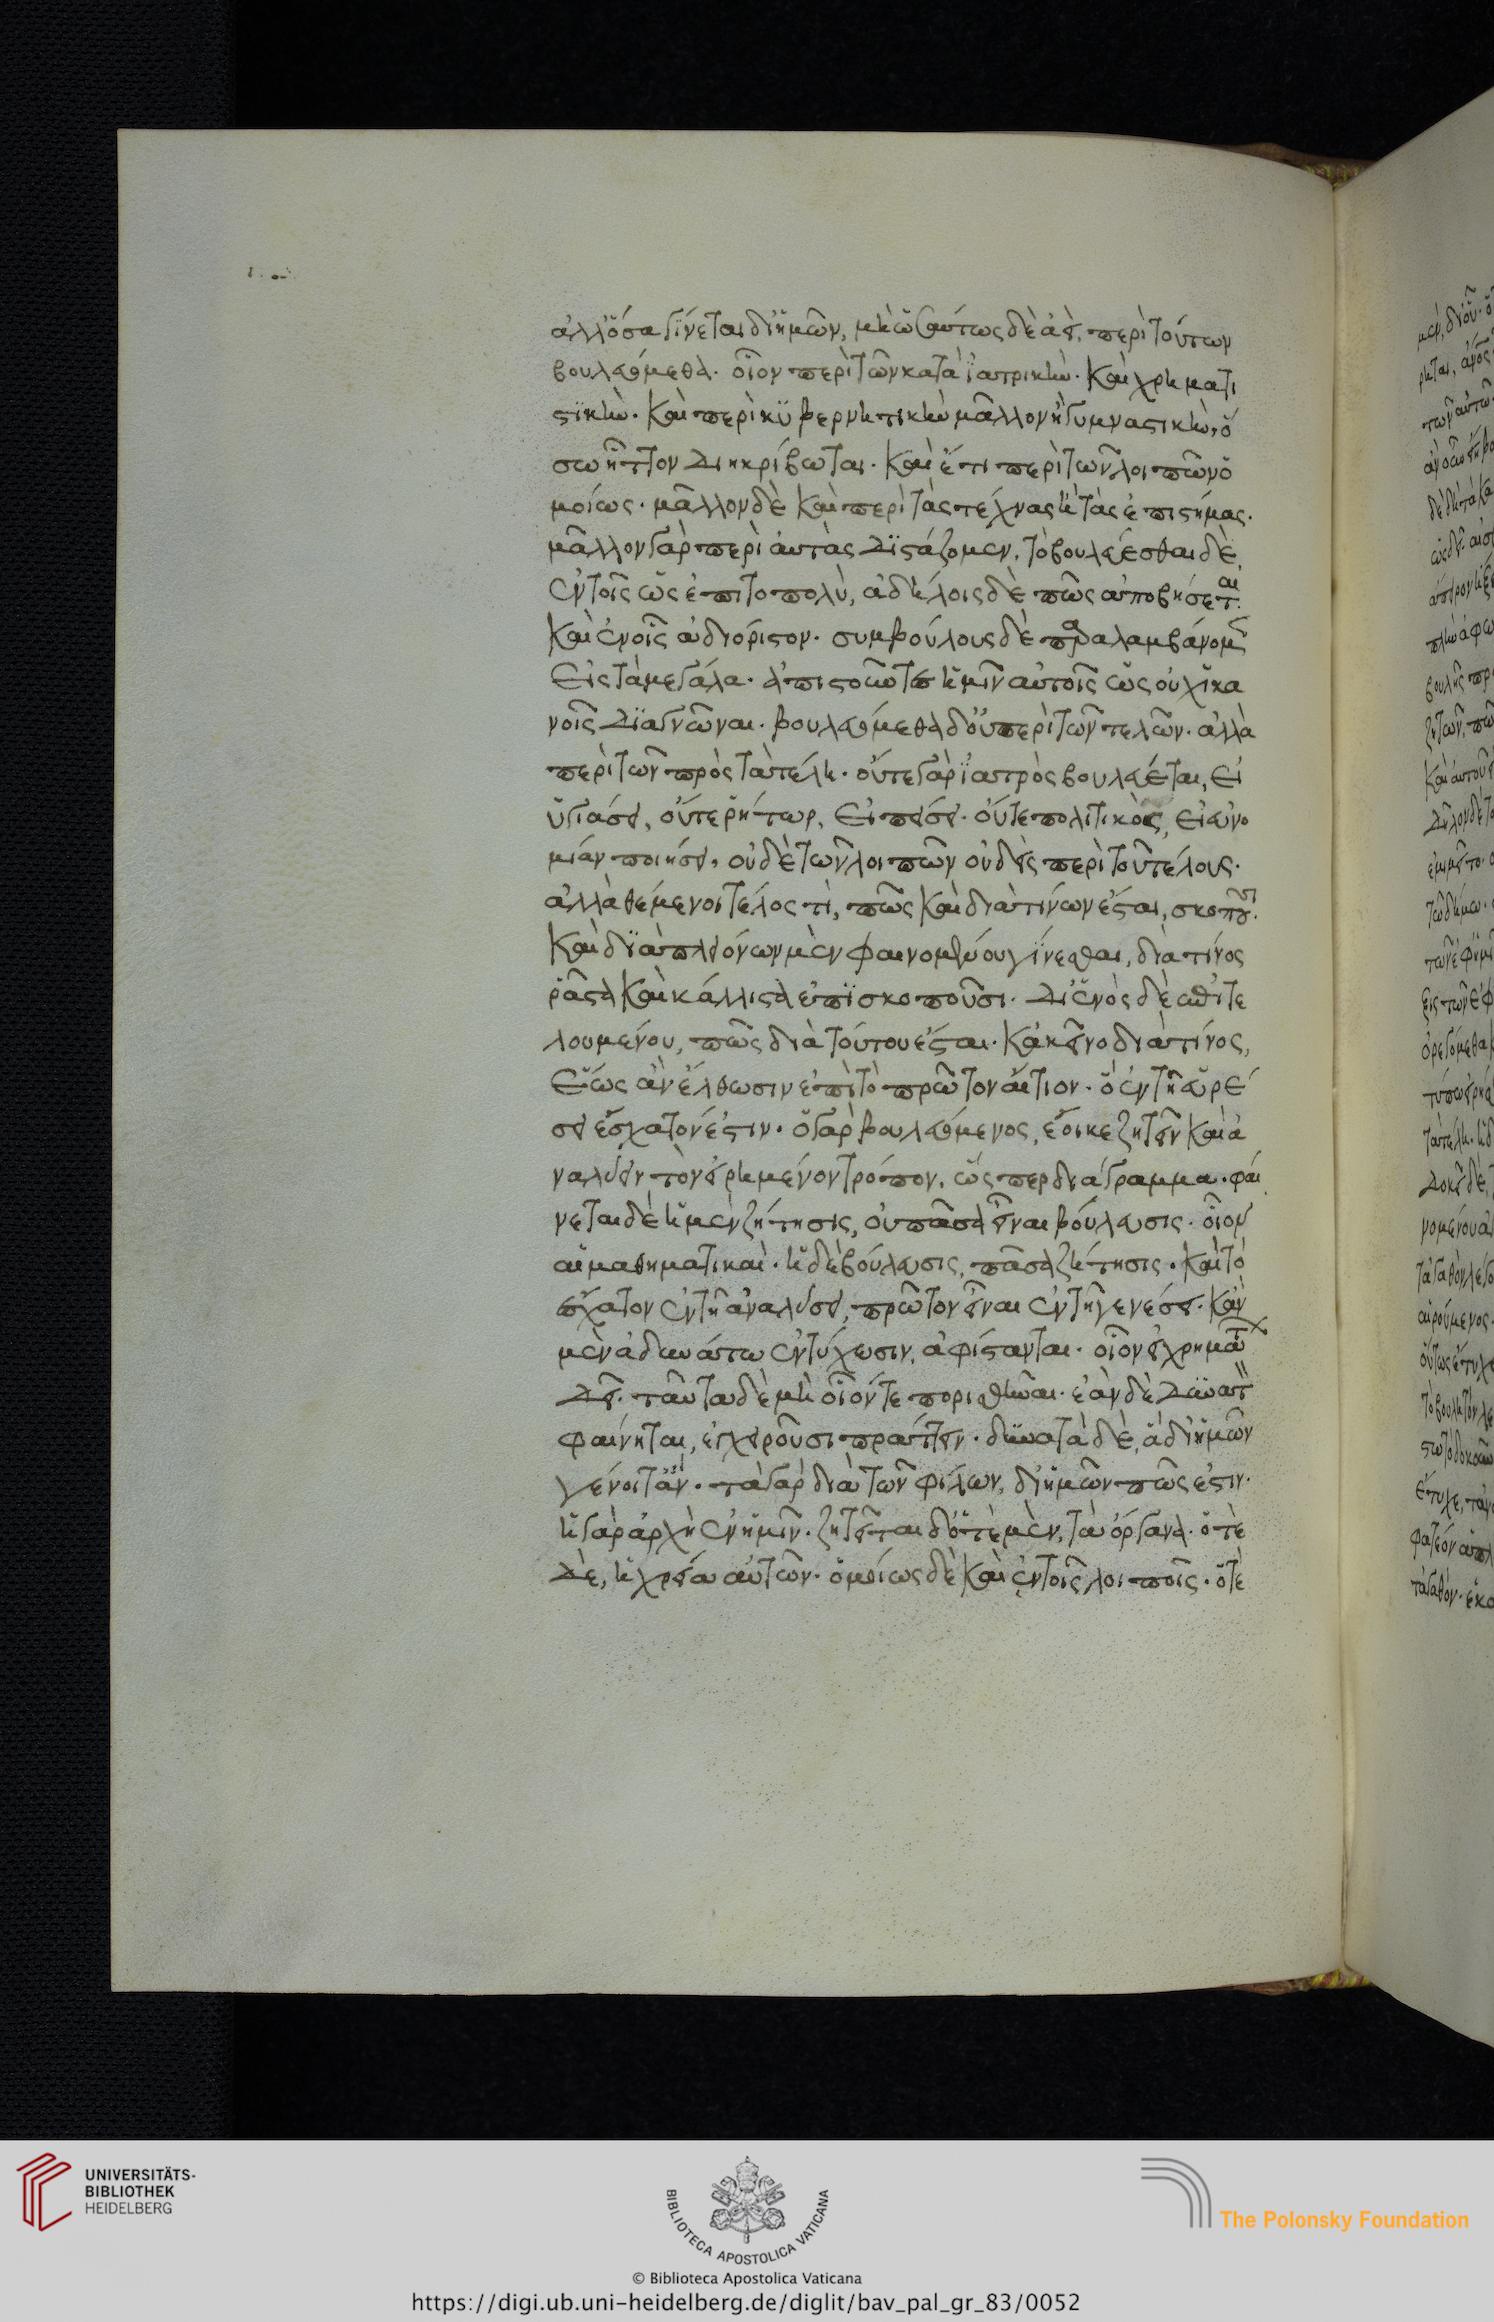 ἀλλ' ὅσα γίνεται δι' ἡμῶν, μὴ ὡσαύτως δὲ ἀεὶ, περὶ τούτων
βουλευόμεθα. οἷον περὶ τῶν κατὰ ἰατρικὴν. καὶ χρηματι
στικὴν. καὶ περὶ κυβερνητικὴν μᾶλλον ἢ γυμναστικὴν, ὅ
σω ἧττον διηκρίβωται. καὶ ἔτι περὶ τῶν λοιπῶν ὁ
μοίως. μᾶλλον δὲ καὶ περὶ τὰς τέχνας ἢ τὰς ἐπιστήμας.
μᾶλλον γὰρ περὶ αὐτὰς διστάζομεν. τὸ βουλεύεσθαι δὲ,
ἐν τοῖς ὡς ἐπιτοπολὺ, ἀδήλοις δὲ πῶς ἀποβήσεται.
καὶ ἐν οἷς ἀδιόριστον. συμβούλους δὲ παραλαμβάνομεν
εἰς τὰ μεγάλα. ἀπιστοῦντες ἡμῖν αὐτοῖς ὡς οὐχ ἱκα
νοῖς διαγνῶναι. βουλευόμεθα δ' οὐ περὶ τῶν τελῶν. ἀλλὰ
περὶ τῶν πρὸς τὰ τέλη. οὔτε γὰρ ἰατρὸς βουλεύεται, εἰ
ὑγιάσει, οὔτε ῥήτωρ, εἰ πείσει. οὔτε πολιτικὸς, εἰ εὐνο
μίαν ποιήσει, οὐδὲ τῶν λοιπῶν οὐδεὶς περὶ τοῦ τέλους.
ἀλλὰ θέμενοι τέλος τὶ, πῶς καὶ διὰ τίνων ἔσται, σκοποῦσι.
καὶ διὰ πλειόνων μὲν φαινομένου γίνεσθαι, διὰ τίνος
ῥᾷστα καὶ κάλλιστα ἐπισκοποῦσι. δι' ἑνὸς δὲ ἐπιτε
λουμένου, πῶς διὰ τούτου ἔσται. κἀκεῖνο διὰ τίνος,
ἕως ἂν ἔλθωσιν ἐπὶ τὸ πρῶτον αἴτιον. ὃ ἐν τῇ εὑρέ
σει ἔσχατόν ἐστιν. ὁ γὰρ βουλευόμενος, ἔοικε ζητεῖν καὶ ἀ
ναλύειν τὸν εἰρημένον τρόπον, ὥσπερ διάγραμμα. φαί
νεται δὲ ἡ μὲν ζήτησις, οὐ πᾶσα εἶναι βούλευσις. οἷον
αἱ μαθηματικαὶ. ἡ δὲ βούλευσις, πᾶσα ζήτησις. καὶ τὸ
ἔσχατον ἐν τῇ ἀναλύσει, πρῶτον εἶναι ἐν τῇ γενέσει. κἂν
μὲν ἀδυνάτω ἐντύχωσιν, ἀφίστανται. οἷον εἰ χρημάτων
δεῖ. ταῦτα δὲ μὴ οἷόν τε πορισθῆναι. ἐὰν δὲ δυνατὸν
φαίνηται, ἐγχειροῦσι πράττειν. δυνατὰ δὲ, ἃ δι' ἡμῶν
γένοιτ' ἄν. τὰ γὰρ διὰ τῶν φίλων, δι' ἡμῶν πῶς ἐστιν.
ἡ γὰρ ἀρχὴ ἐν ἡμῖν. ζητεῖται δ' ὁτὲ μὲν, τὰ ὄργανα. ὁτὲ
δὲ, ἡ χρεία αὐτῶν. ὁμοίως δὲ καὶ ἐν τοῖς λοιποῖς. ὁτὲ
UNIVERSITÄTS-
BIBLIOTHEK
HEIDELBERG
BIBLIOTECA APOSTOLICA VATICANA
The Polonsky Foundation
© Biblioteca Apostolica Vaticana
https://digi.ub.uni-heidelberg.de/diglit/bav_pal_gr_83/0052